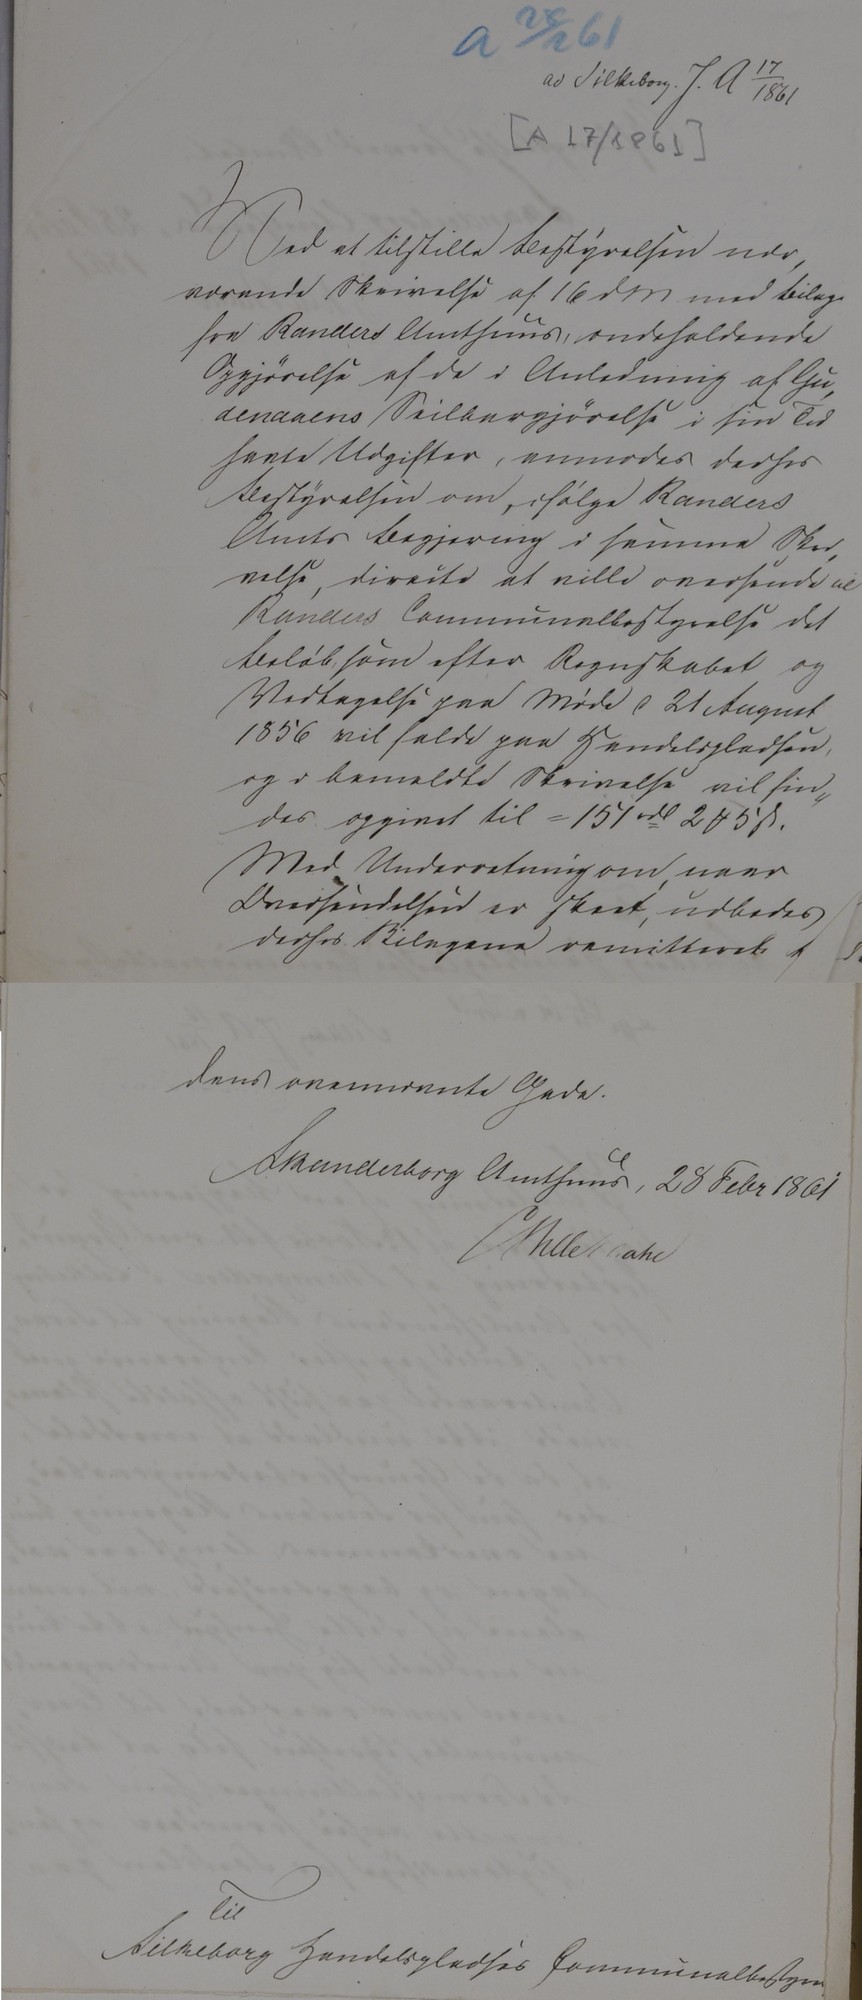 a 28/2 61
ad Silkeborg. J. A 17/1861
[A 17/1861]
Ved at tilstille Bestyrelsen nær,
værende Skrivelse af 16 d M med Bilag
fra Randers Amthuus, indeholdende
Opgjörelse af de i Anledning af Gu,
denaaens Seilbargjörelse i sin Tid
havte Udgifter, anmodes derhos
Bestyrelsen om, ifølge Randers
Amts Begjering i samme Skri,
velse, directe at ville oversende til
Randers Communalbestyrelse det
Beløb, som efter Regnskabet og
Vedtagelse paa Møde d 21 August
1856 vil falde paa Handelspladsen,
og i bemeldte Skrivelse vil fin,,
des opgivet til = 151 rdl 2 ß.
Med Underretning om, naar
Oversendelsen er skeet, udbedes
derhos Bilagene remitteret
dens ovennævnte Gade.
Skanderborg Amthuus, 28 Febr 1861
Til
Silkeborg Handelspladses Communalbestyre